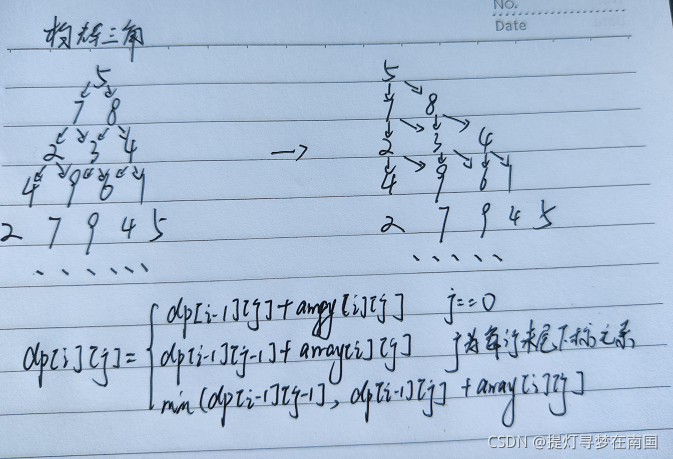 No.
Date
构造三角
5
7 8
2 3 4
4 9 6 1
2 7 9 4 5
......
→
5
7 8
2 3 4
4 9 6 1
2 7 9 4 5
......
dp[i][j]=
dp[i-1][j]+array[i][j] j==0
dp[i-1][j-1]+array[i][j] j为每行末尾下标元素
min(dp[i-1][j-1], dp[i-1][j] + array[i][j]
CSDN @提灯寻梦在南国